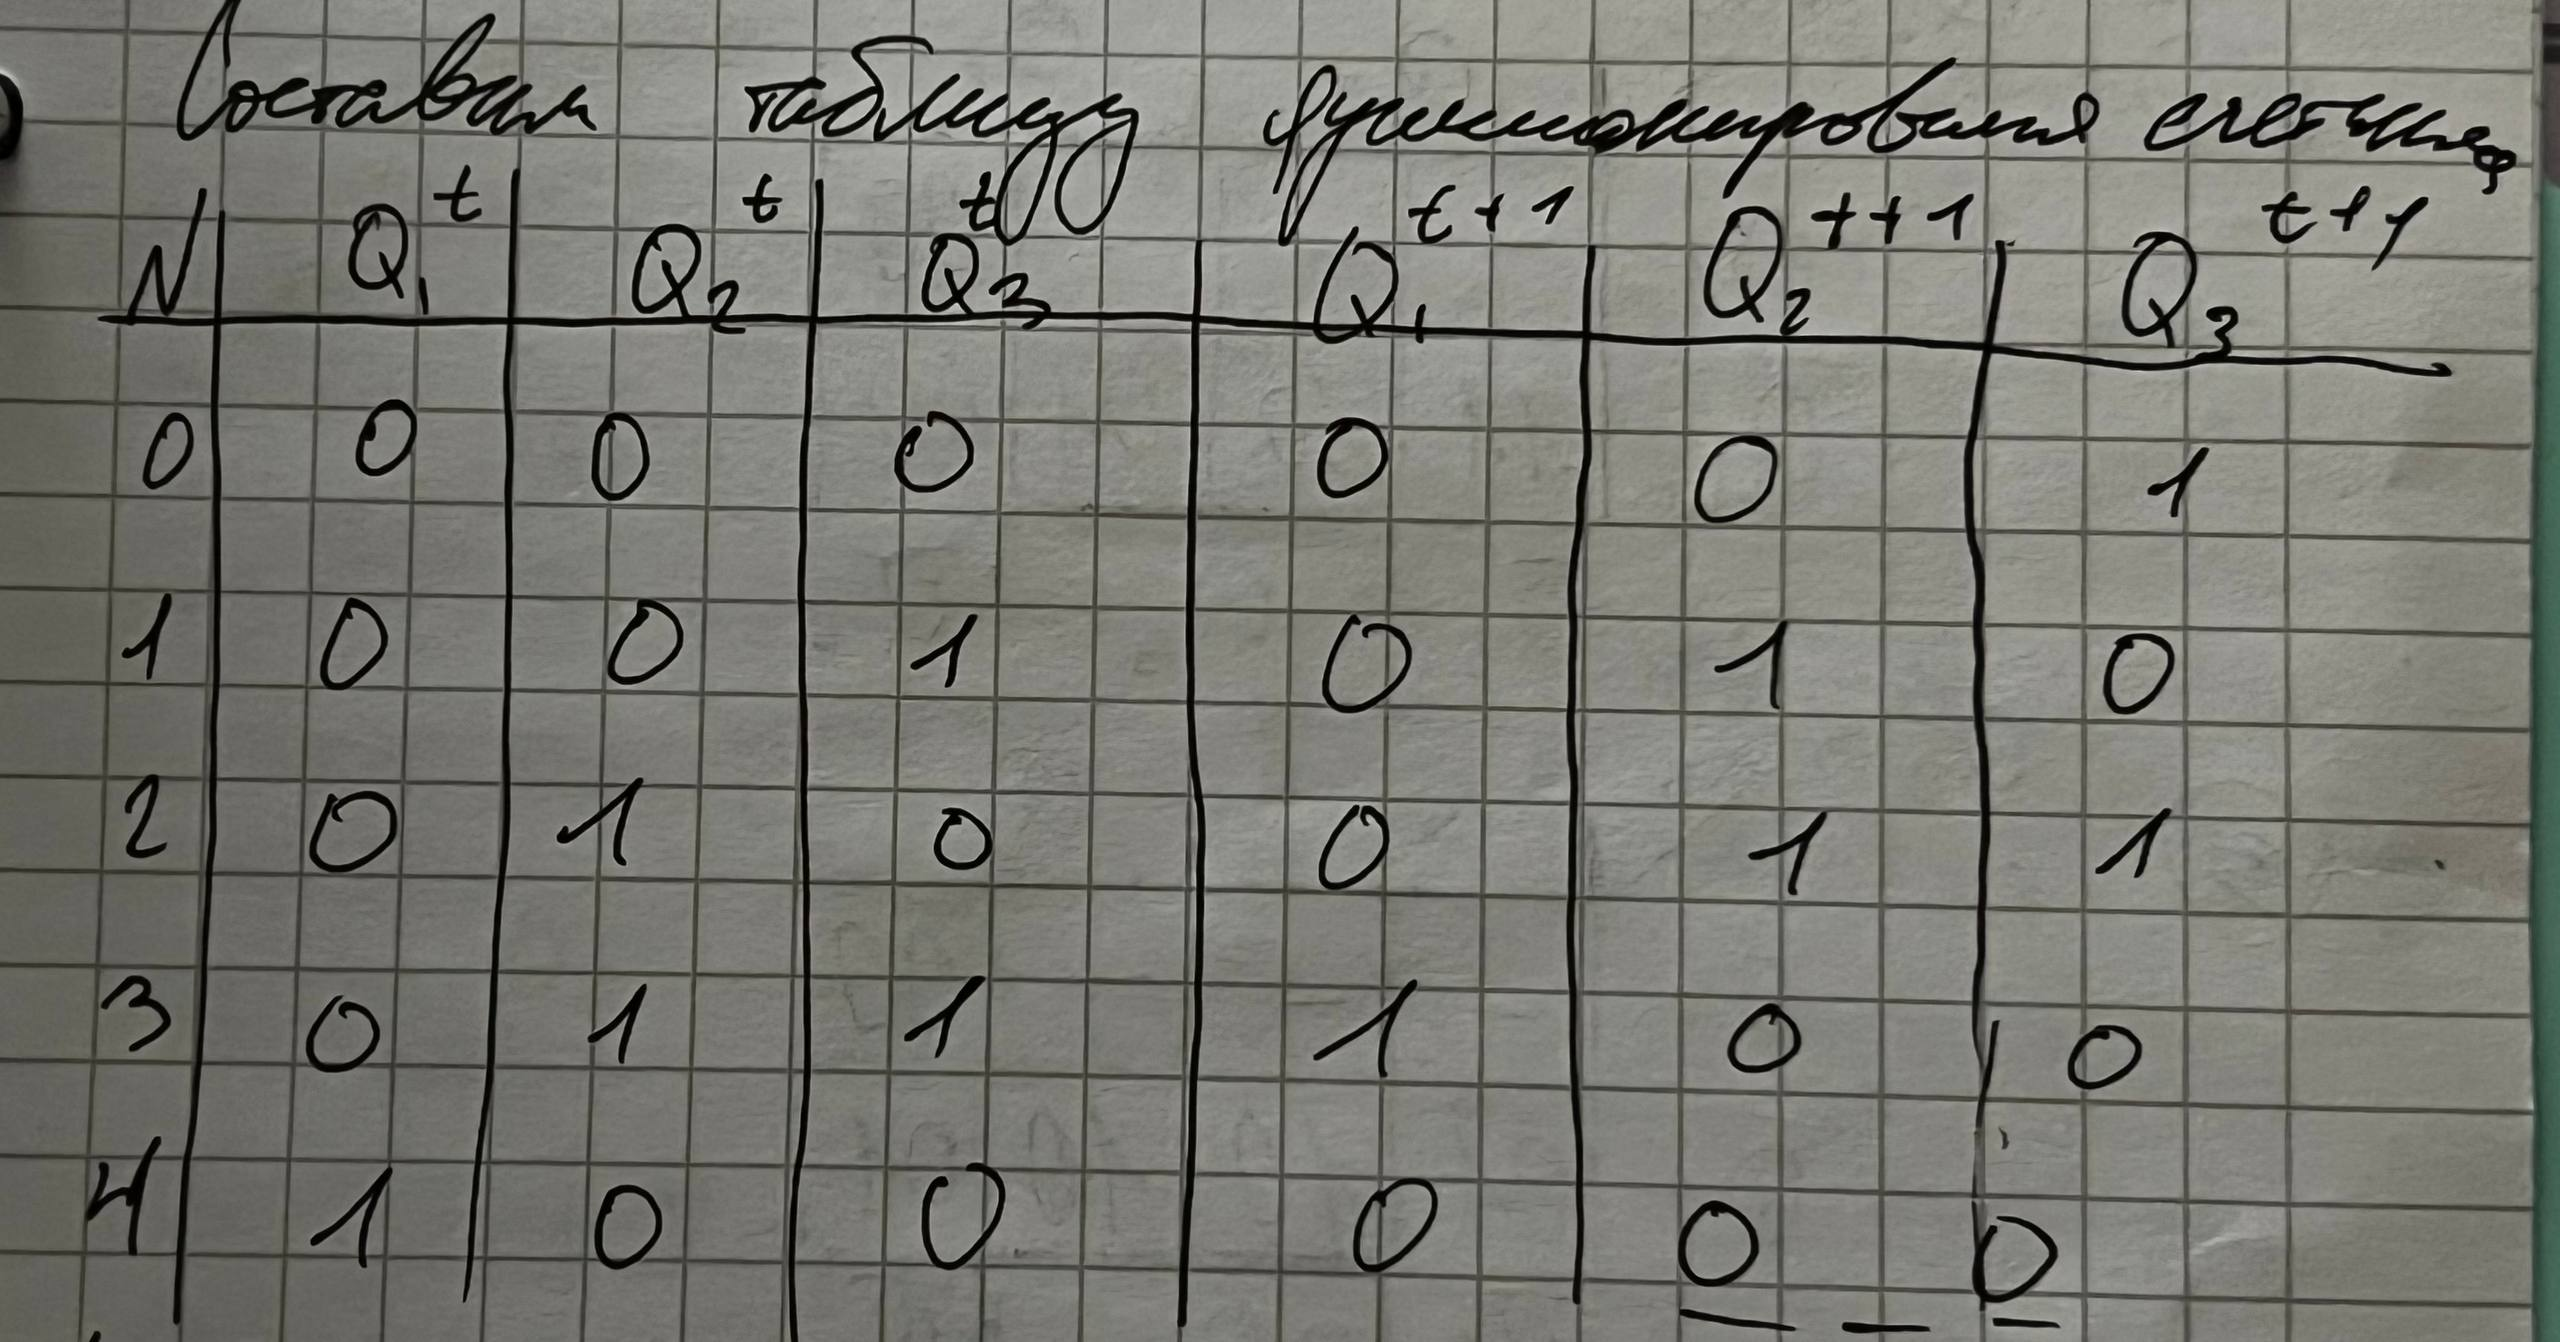 Составим таблицу функционирования счетчика
N Q₁ᵗ Q₂ᵗ Q₃ᵗ Q₁ᵗ⁺¹ Q₂ᵗ⁺¹ Q₃ᵗ⁺¹
0 0 0 0 0 0 1
1 0 0 1 0 1 0
2 0 1 0 0 1 1
3 0 1 1 1 0 0
4 1 0 0 0 0 0